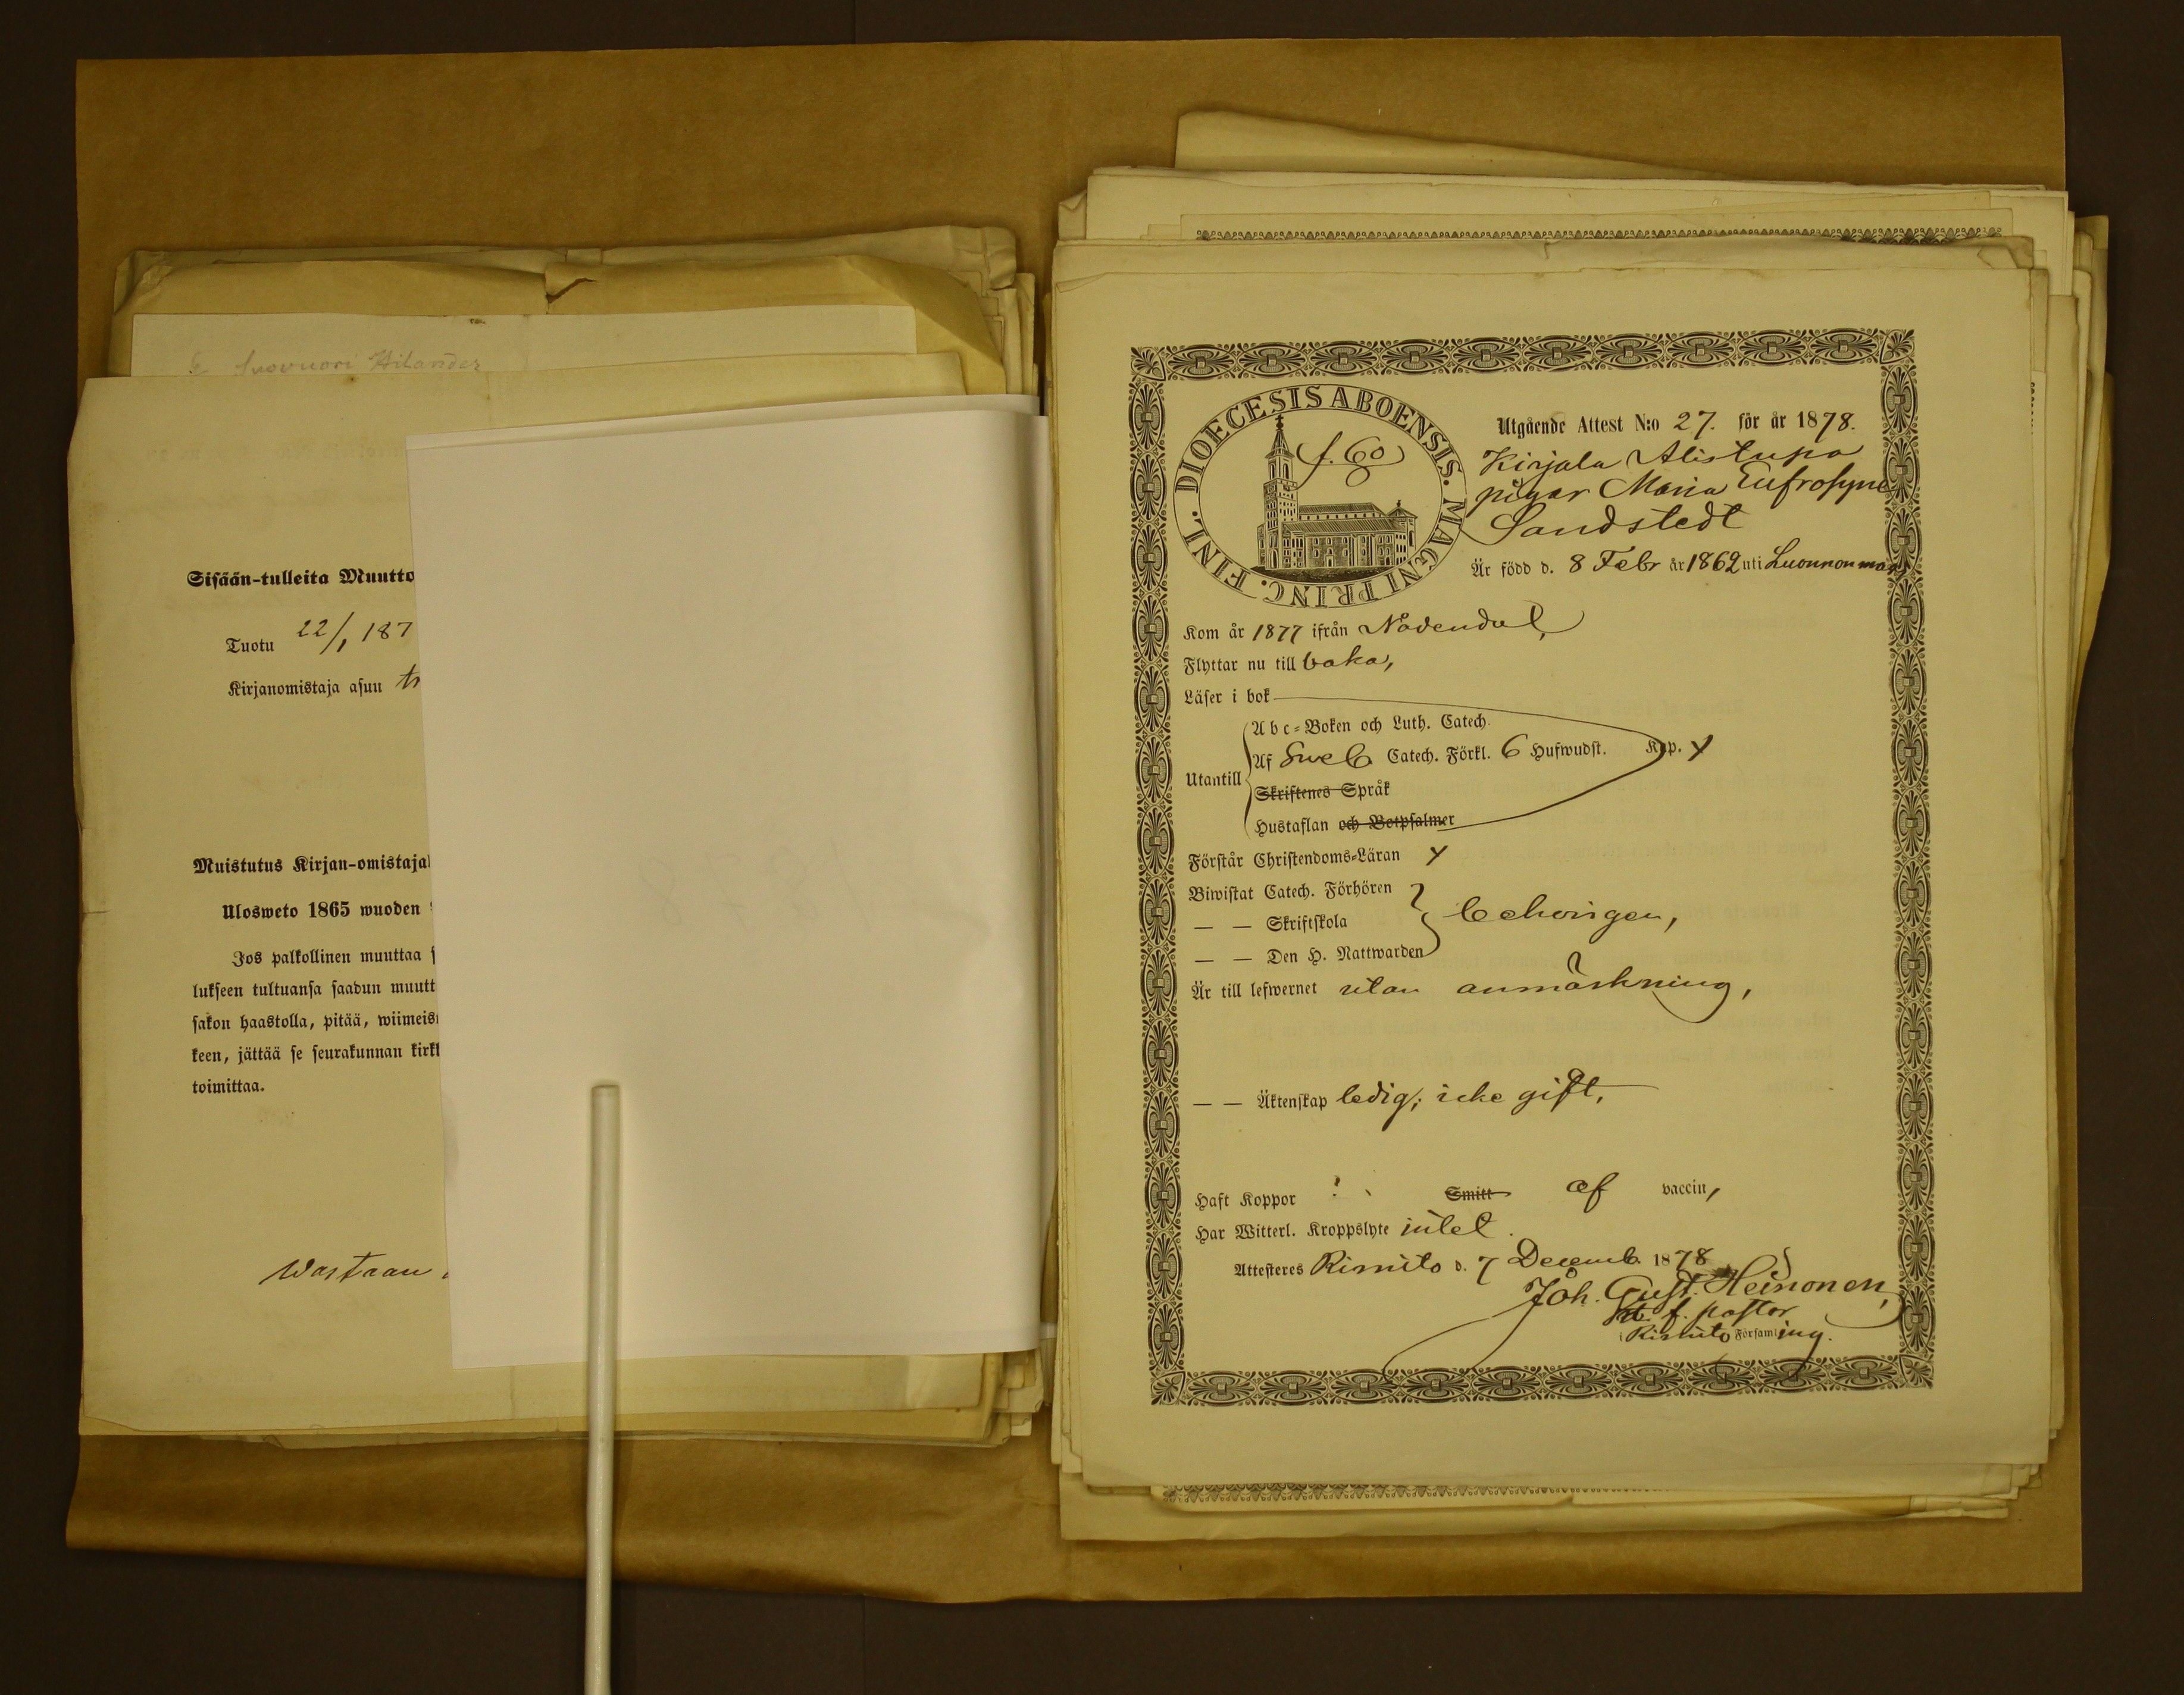 Suovuori Hilander
Sisään-tulleita Muutto
Tuotu 22/1 187
Kirjanomistaja asuu
Muistutus Kirjan-omistajal
Ulosweto 1865 wuoden
Jos palkollinen muuttaa s
lukseen tultuansa saadun muutt
sakon haastolla, pitää, wiimeis
keen, jättää se seurakunnan kirk
toimittaa.
Wastaan
DIOECESIS ABOENSIS. MAGNI PRINC. FINL.
f. 60
Utgående Attest N:o 27. för år 1878.
Kirjala Alistupa
pigan Maria Eufrosyne
Sandstedt
Är född d. 8 Febr år 1862 uti Luonnonmaa
Kom år 1877 ifrån Nådendal,
Flyttar nu till baka,
Läser i bok
Utantill
Abc-Boken och Luth. Catech.
Af Sveb Catech. Förkl. 6 Hufwudst. Kap. x
Skriftenes Språk
Hustaflan och Botpsalmer
Förstår Christendoms-Läran x
Biwistat Catech. Förhören
— — Skriftskola behörigen,
— — Den H. Nattwarden
Är till lefwernet utan anmärkning,
— — Äktenskap ledig; icke gift.
Haft Koppor Smitt af vaccin,
Har Witterl. Kroppslyte intet.
Attesteres Rimito d. 7 Decemb. 1878
Joh. Gust. Heinonen,
v. f. pastor
i Rimito Församling.